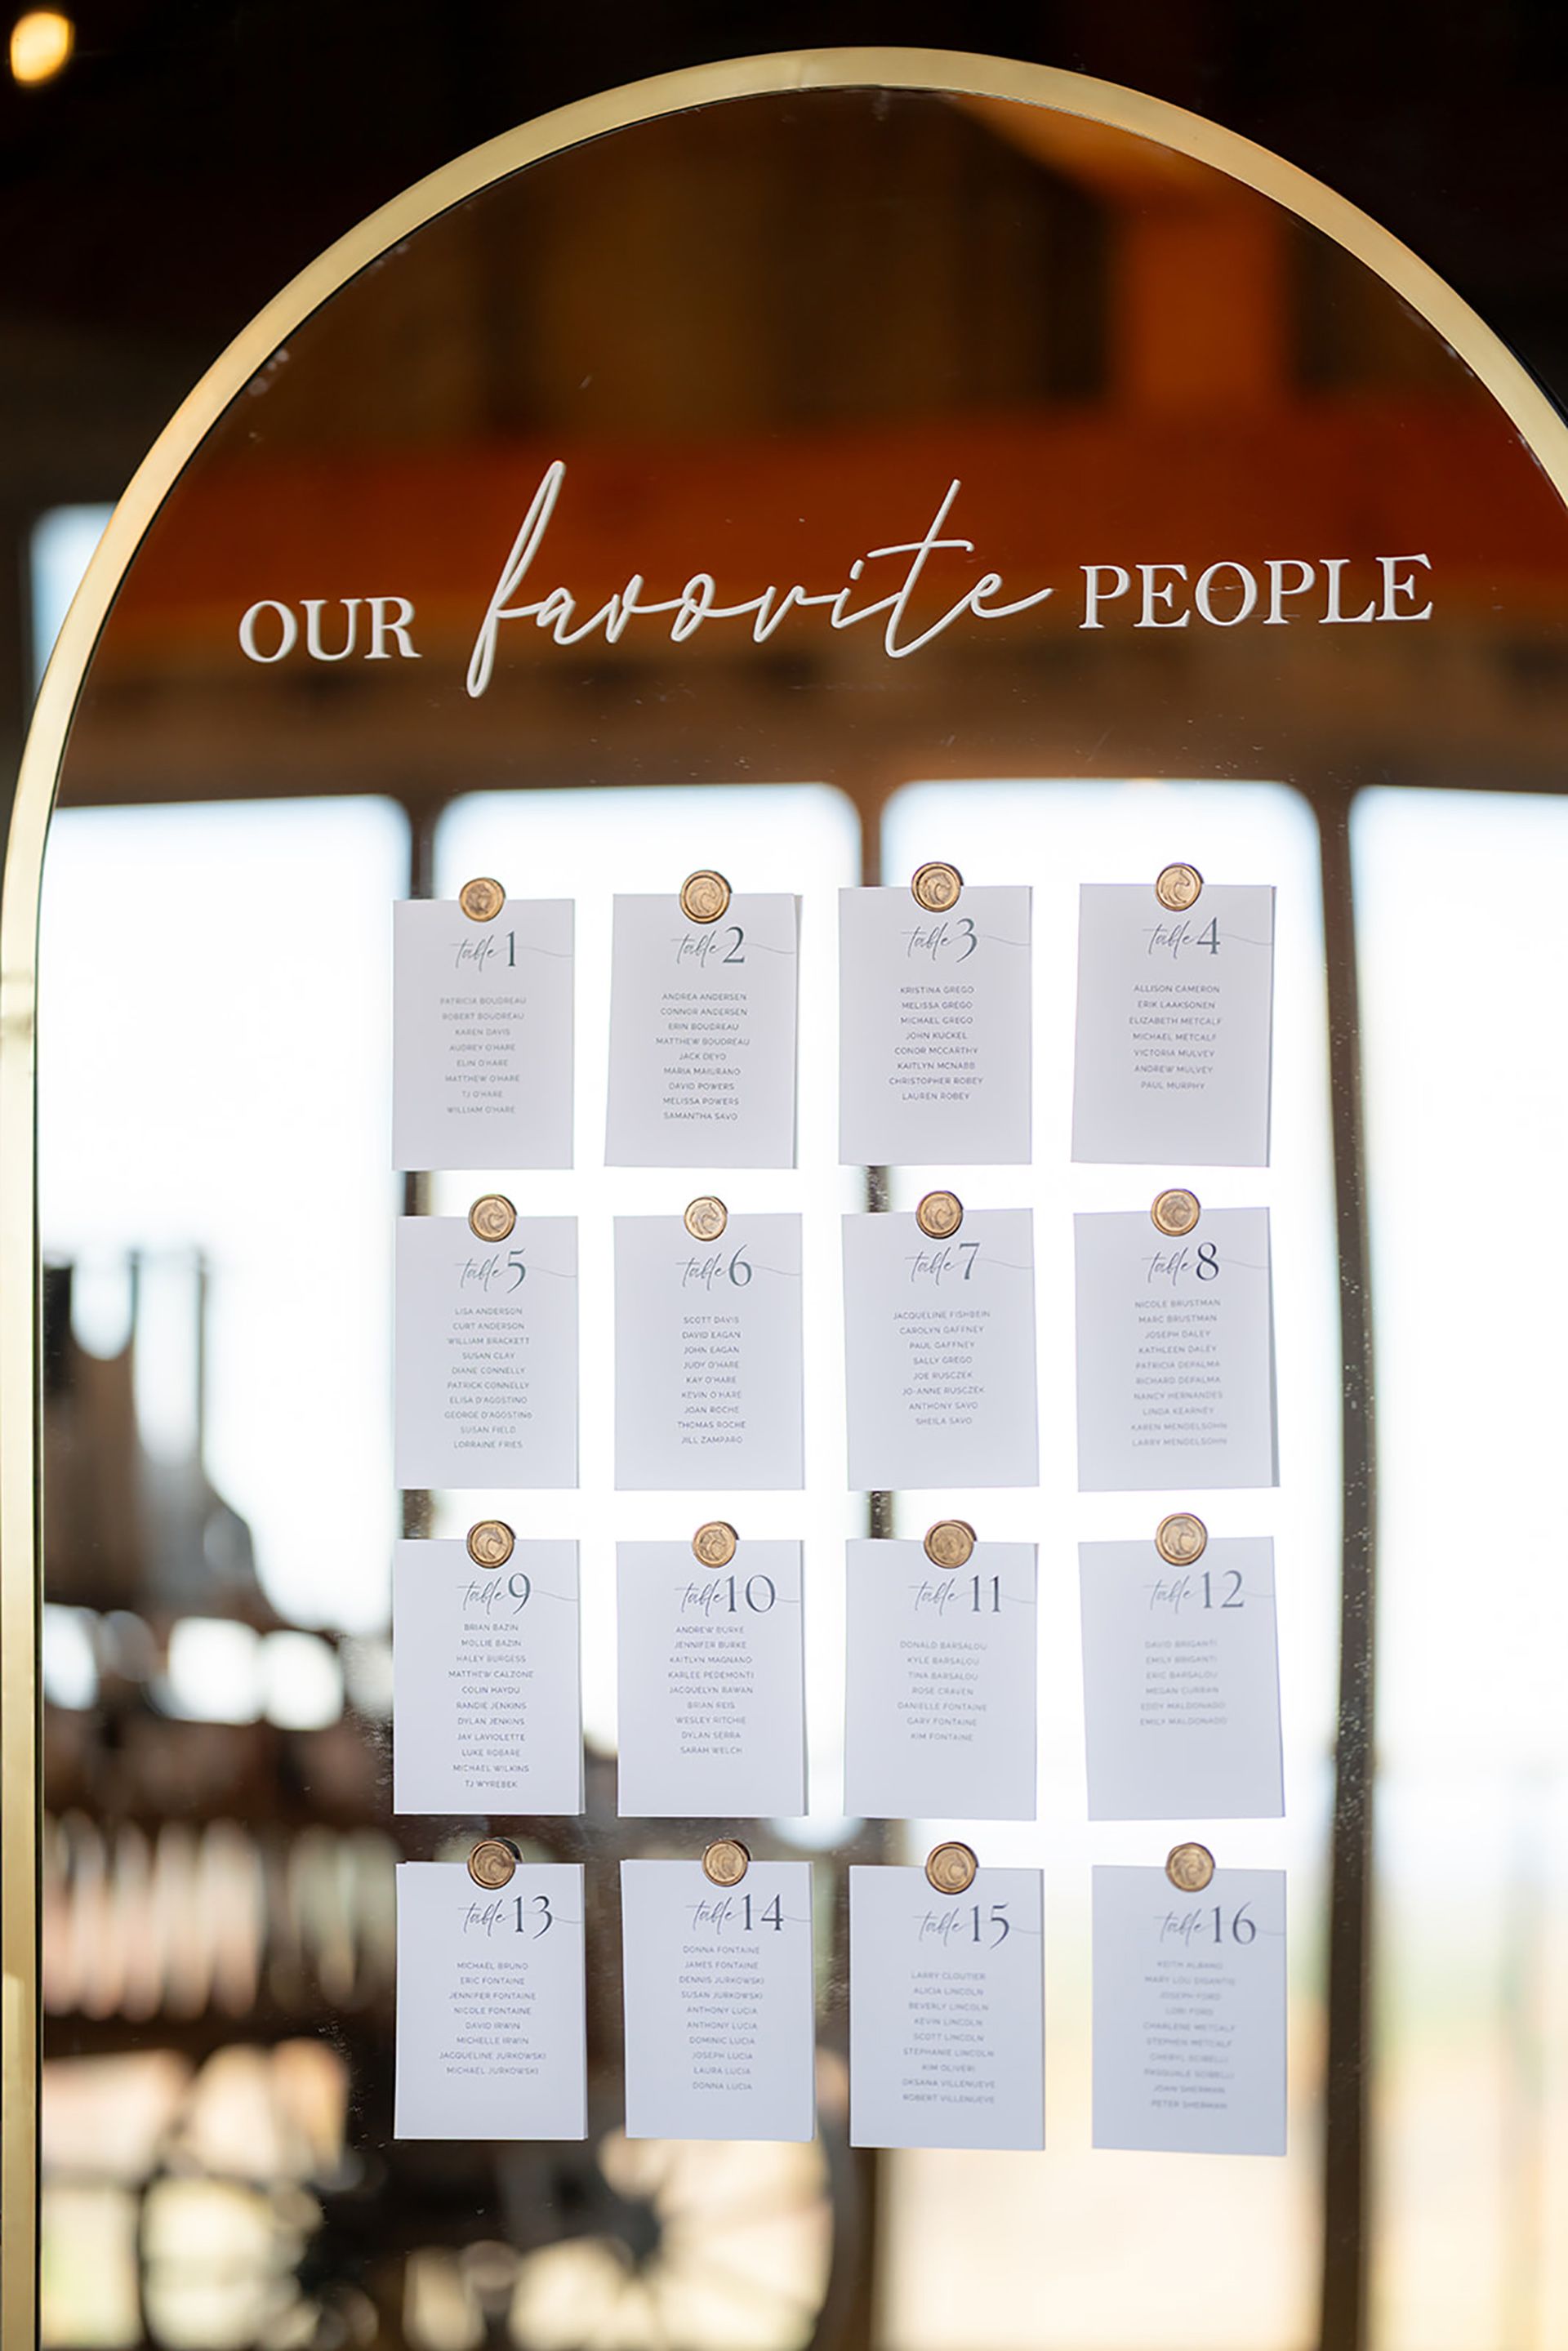 OUR favorite PEOPLE
table 1
PATRICIA BOUDREAU
ROBERT BOUDREAU
KAREN DAVIS
AUDREY O'HARE
ELIN O'HARE
MATTHEW O'HARE
TJ O'HARE
WILLIAM O'HARE
table 2
ANDREA ANDERSEN
CONNOR ANDERSEN
ERIN BOUDREAU
MATTHEW BOUDREAU
JACK DEYO
MARIA MAIURANO
DAVID POWERS
MELISSA POWERS
SAMANTHA SAVO
table 3
KRISTINA GREGO
MELISSA GREGO
MICHAEL GREGO
JOHN KUCKEL
CONOR MCCARTHY
KAITLYN MCNABB
CHRISTOPHER ROBEY
LAUREN ROBEY
table 4
ALLISON CAMERON
ERIK LAAKSONEN
ELIZABETH METCALF
MICHAEL METCALF
VICTORIA MULVEY
ANDREW MULVEY
PAUL MURPHY
table 5
LISA ANDERSON
CURT ANDERSON
WILLIAM BRACKETT
SUSAN CLAY
DIANE CONNELLY
PATRICK CONNELLY
ELISA D'AGOSTINO
GEORGE D'AGOSTINO
SUSAN FIELD
LORRAINE FRIES
table 6
SCOTT DAVIS
DAVID EAGAN
JOHN EAGAN
JUDY O'HARE
KAY O'HARE
KEVIN O'HARE
JOAN ROCHE
THOMAS ROCHE
JILL ZAMPARO
table 7
JACQUELINE FISHBEIN
CAROLYN GAFFNEY
PAUL GAFFNEY
SALLY GREGO
JOE RUSCZEK
JO-ANNE RUSCZEK
ANTHONY SAVO
SHEILA SAVO
table 8
NICOLE BRUSTMAN
MARC BRUSTMAN
JOSEPH DALEY
KATHLEEN DALEY
PATRICIA DEPALMA
RICHARD DEPALMA
NANCY HERNANDES
LINDA KEARNEY
KAREN MENDELSOHN
LARRY MENDELSOHN
table 9
BRIAN BAZIN
MOLLIE BAZIN
HALEY BURGESS
MATTHEW CALZONE
COLIN HAYDU
RANDIE JENKINS
DYLAN JENKINS
JAY LAVIOLETTE
LUKE ROBARE
MICHAEL WILKINS
TJ WYREBEK
table 10
ANDREW BURKE
JENNIFER BURKE
KAITLYN MAGNANO
KARLEE PEDEMONTI
JACQUELYN RAWAN
BRIAN REIS
WESLEY RITCHIE
DYLAN SERRA
SARAH WELCH
table 11
DONALD BARSALOU
KYLE BARSALOU
TINA BARSALOU
ROSE CRAVEN
DANIELLE FONTAINE
GARY FONTAINE
KIM FONTAINE
table 12
DAVID BRIGANTI
EMILY BRIGANTI
ERIC BARSALOU
MEGAN CURRAN
EDDY MALDONADO
EMILY MALDONADO
table 13
MICHAEL BRUNO
ERIC FONTAINE
JENNIFER FONTAINE
NICOLE FONTAINE
DAVID IRWIN
MICHELLE IRWIN
JACQUELINE JURKOWSKI
MICHAEL JURKOWSKI
table 14
DONNA FONTAINE
JAMES FONTAINE
DENNIS JURKOWSKI
SUSAN JURKOWSKI
ANTHONY LUCIA
ANTHONY LUCIA
DOMINIC LUCIA
JOSEPH LUCIA
LAURA LUCIA
DONNA LUCIA
table 15
LARRY CLOUTIER
ALICIA LINCOLN
BEVERLY LINCOLN
KEVIN LINCOLN
SCOTT LINCOLN
STEPHANIE LINCOLN
KIM OLIVERI
OKSANA VILLENUEVE
ROBERT VILLENUEVE
table 16
KEITH ALBANO
MARY LOU
JOSEPH FORD
LORI FORD
CHARLENE METCALF
STEPHEN METCALF
CHERYL SCIBELLI
PASQUALE SCIBELLI
JOAN SHERMAN
PETER SHERMAN